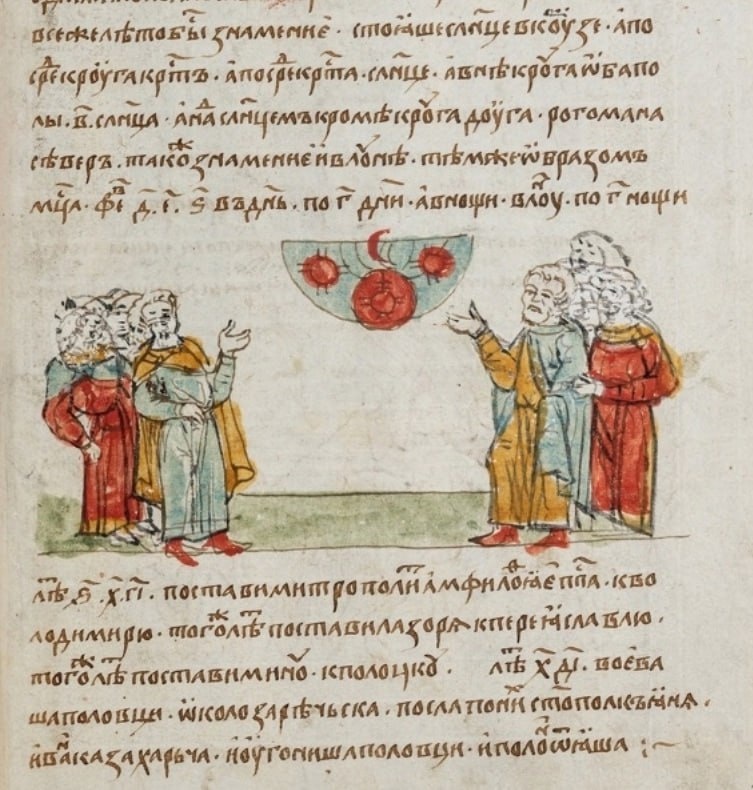 всежелѣтобы̑знамение · стоꙗшеслн҃цевкроуѕе · апо
срⷣекроугакрⷭтъ · апосрⷣекрⷭта · слн҃це · авнѣкроугаѿбапо
лы · в҃ · слн҃ца · анаⷣслн҃цемъкромѣкроугадоуга · рогомана
сѣверъ · такоⷤзнамениеивлоунѣ · тѣмжеѿбразомъ
мцⷭа · феⷡ · д҃ · е҃ · ѕ҃ въдн҃ь · по г҃ дн҃и · авнощи · влоуⷩ · по г҃ нощи
лѣⷮ ҂ѕ҃ · х҃ · гі҃ · поставимитрополиⷮамфилоⷯꙗепⷭпа · кво
лодимирю · тогоⷤлѣⷮпоставилазоря кпереꙗславлю ·
тогоⷤлѣⷮпоставиминоу · кполоцкоу · лѣⷮ х҃ ді҃ · воева
шаполовци · ѡколозарѣчьска · посла по ниⷯ ст҃ополкъꙗня ·
иваⷩказахарьча · иоугонишаполовци · иполоⷩѿꙗша :~